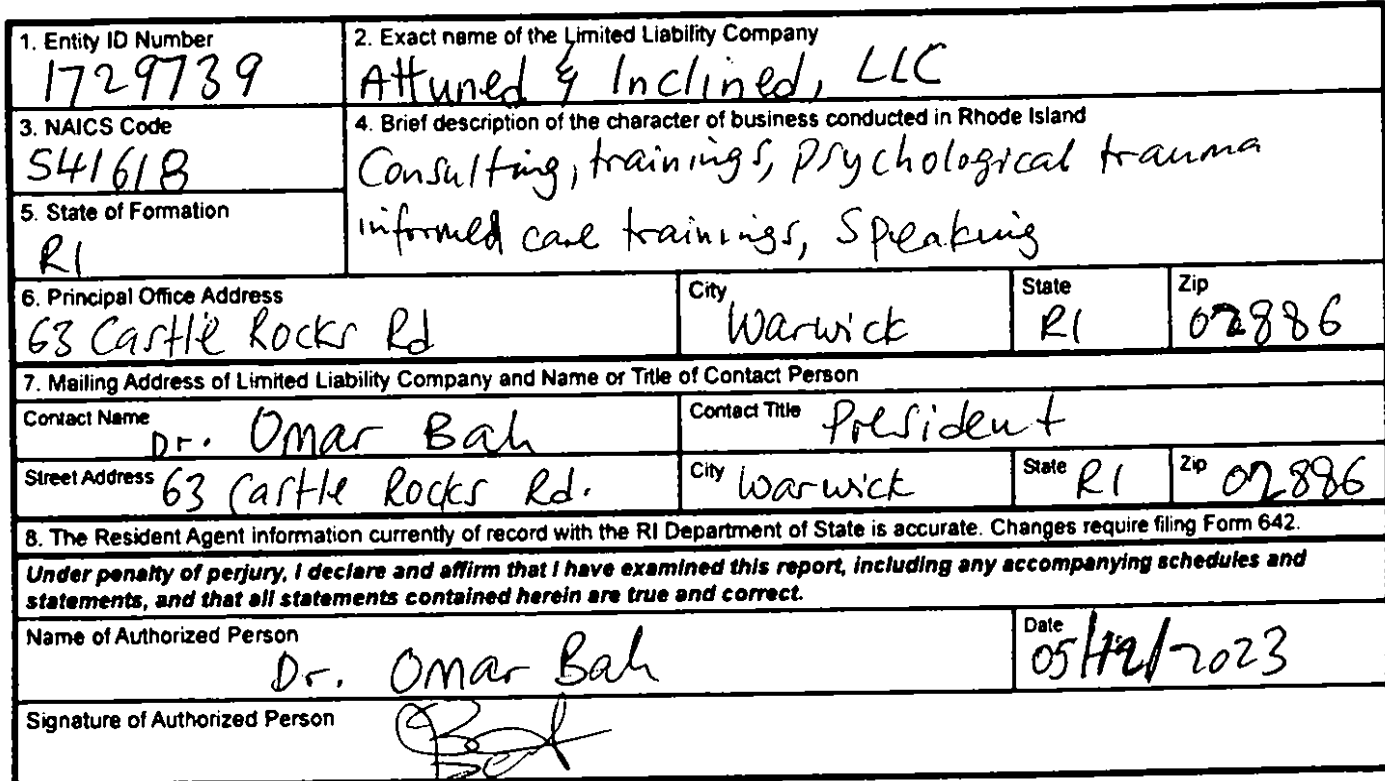 1. Entity ID Number
1729739
2. Exact name of the Limited Liability Company
Attuned & Inclined, LLC
3. NAICS Code
541618
4. Brief description of the character of business conducted in Rhode Island
Consulting, trainings, psychological trauma
informed care trainings, Speaking
5. State of Formation
RI
6. Principal Office Address
63 Castle Rocks Rd
City
Warwick
State
RI
Zip
02886
7. Mailing Address of Limited Liability Company and Name or Title of Contact Person
Contact Name Dr. Omar Bah
Contact Title President
Street Address 63 Castle Rocks Rd.
City Warwick
State RI
Zip 02886
8. The Resident Agent information currently of record with the RI Department of State is accurate. Changes require filing Form 642.
Under penalty of perjury, I declare and affirm that I have examined this report, including any accompanying schedules and
statements, and that all statements contained herein are true and correct.
Name of Authorized Person
Dr. Omar Bah
Date
05/12/2023
Signature of Authorized Person